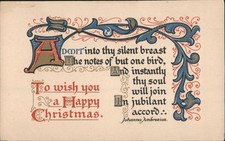 Admit into thy silent breast
The notes of but one bird,
And instantly
thy soul
will join
In jubilant
accord.
To wish you
a Happy
Christmas.